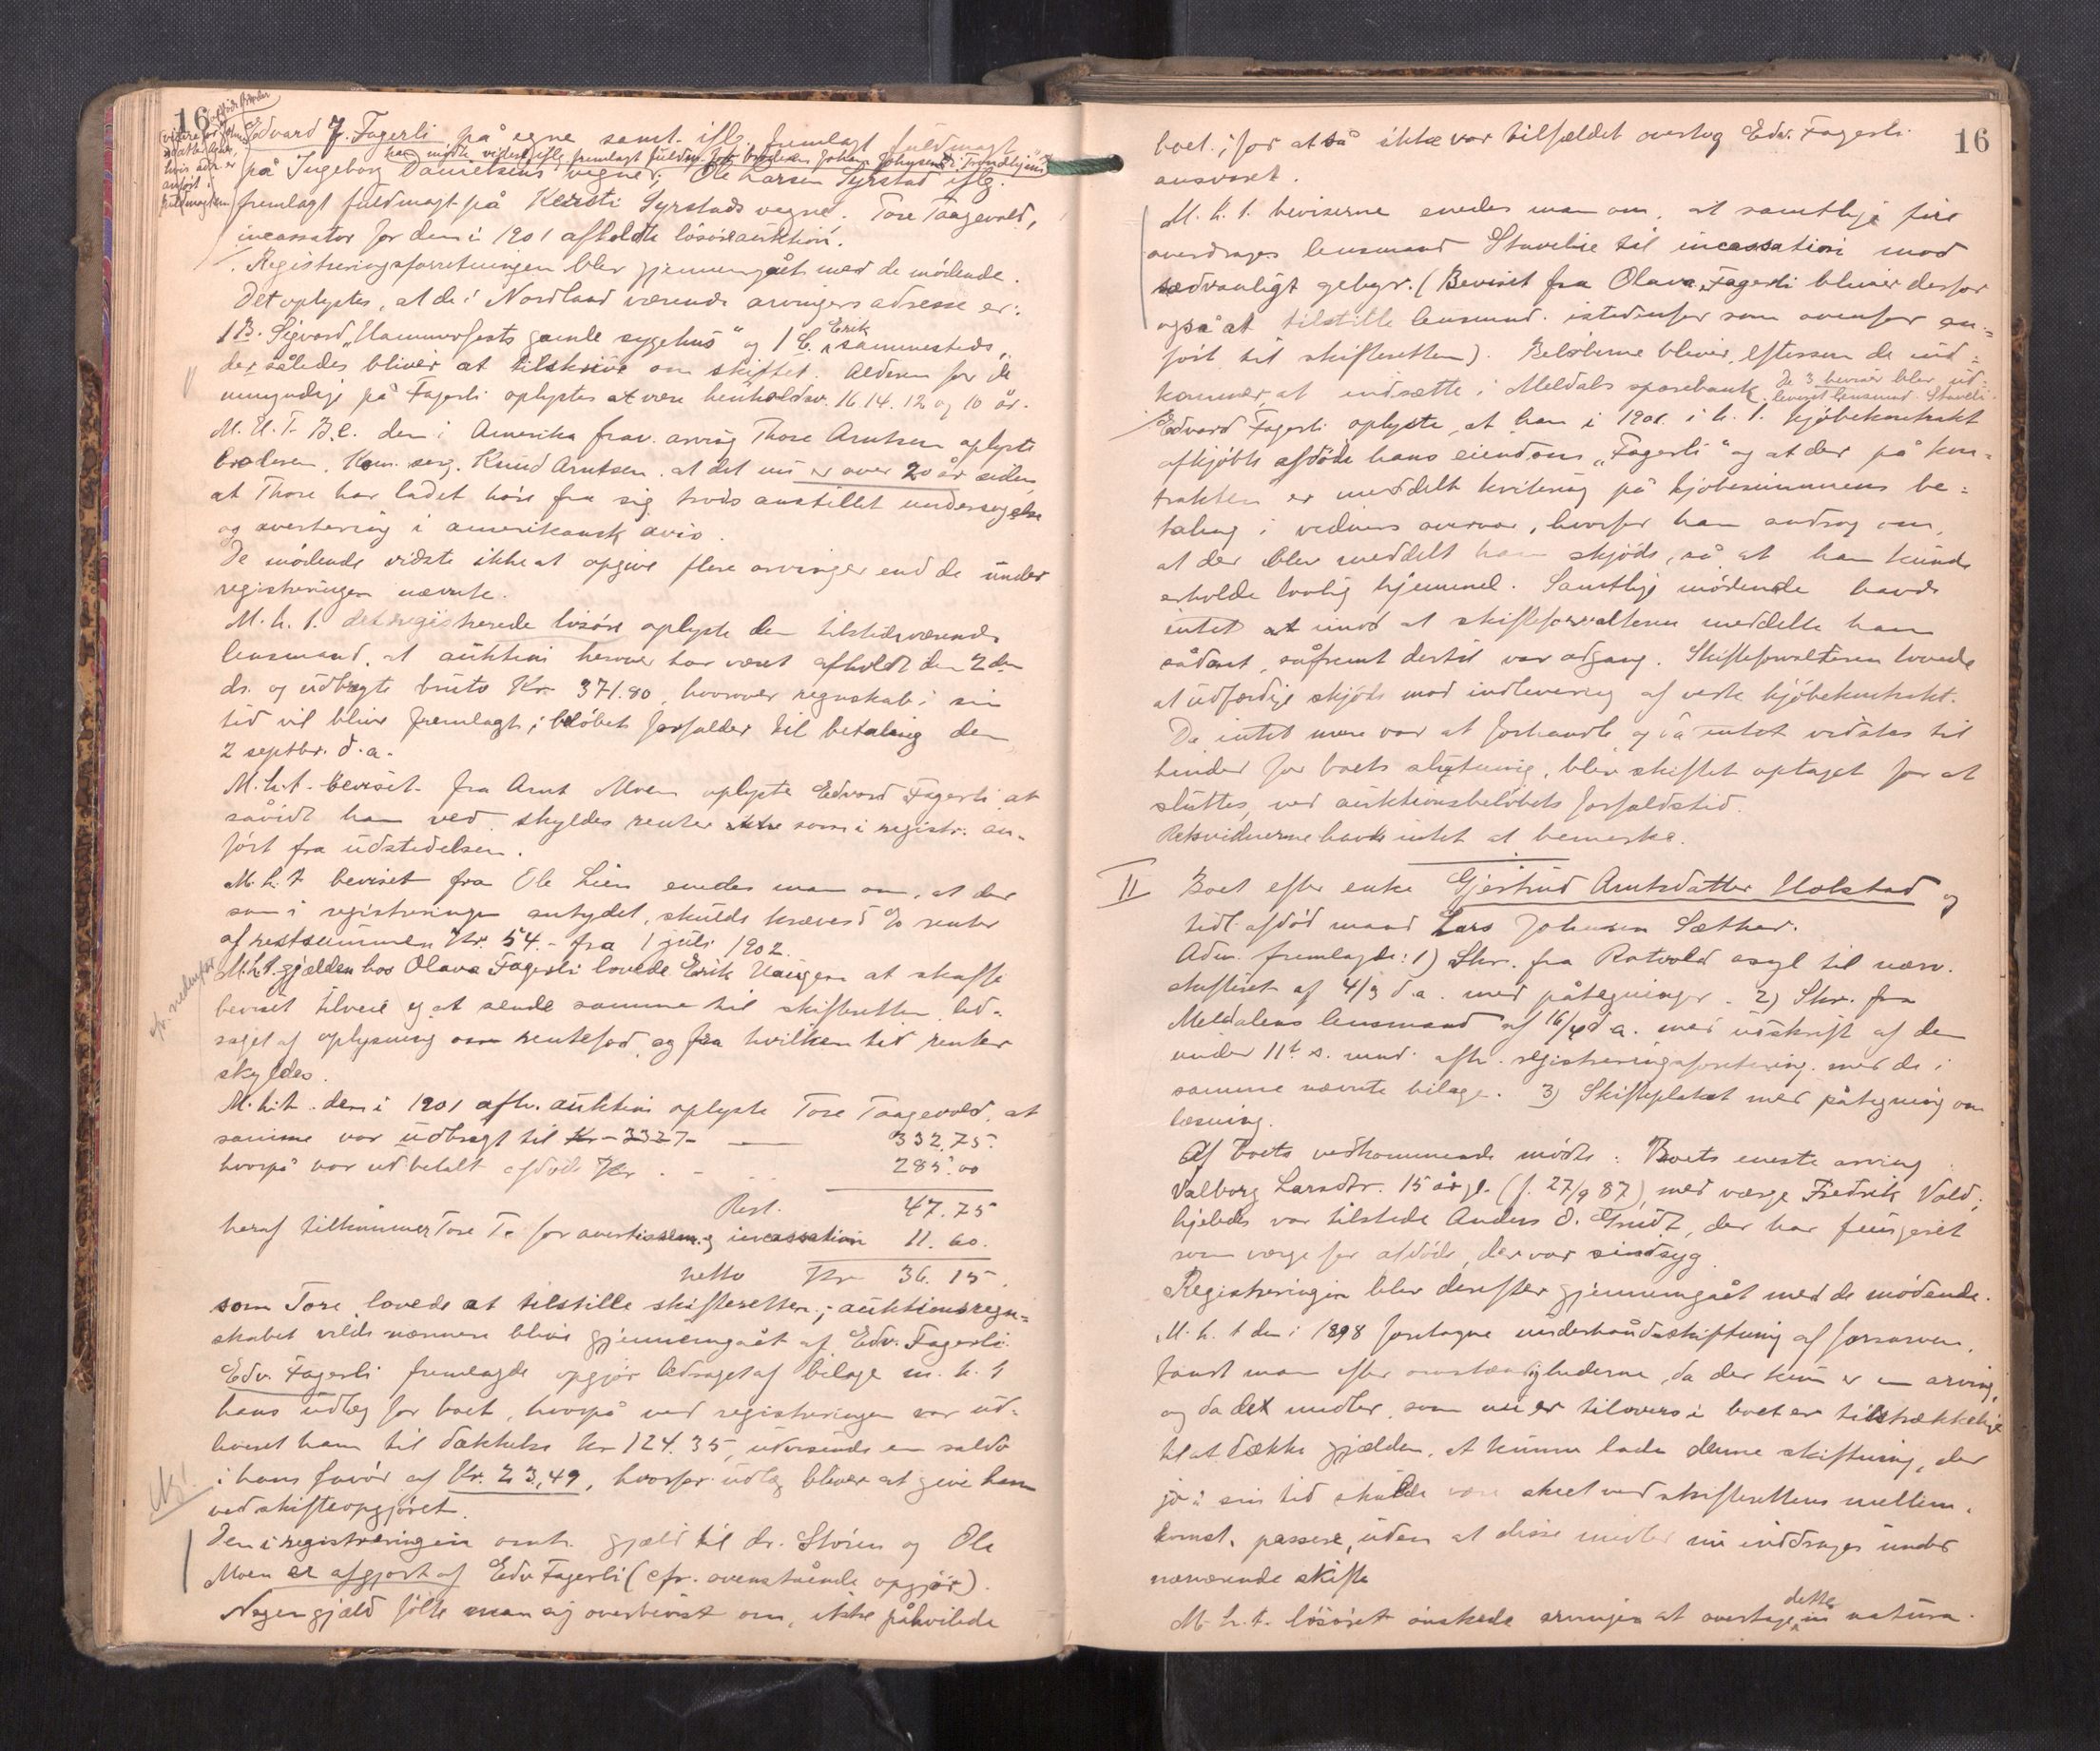 16
Edvard J. Fagerli på egne samt iflg. fremlagt fuldmagt
han mødte videre iflg. fremlagt fuldm. for broderen Johan Johnsen i Trondhjem
på Ingeborg Danielsens vegne; Ole Larsen Syrstad iflg.
fremlagt fuldmagt på Kersti Syrstads vegne. Tore Taagevold,
incassator for den i 1901 afholdte løsøreauktion.
Registreringsforretningen blev gjennemgået med de mødende.
Det oplystes, at de i Nordland værende arvingers adresse er:
1 B. Sigvard „Hammerfests gamle sygehus" og 1 C. Erik sammesteds,
der således bliver at tilskrive om skiftet. Alderen for de
umyndige på Fagerli oplystes at være henholdsv. 16 14. 12 og 10 år.
M. H. T. den i Amerika frav. arving Thore Arntsen oplyste
broderen, Kom. serg. Knud Arntsen, at det nu er over 20 år siden,
at Thore har ladet høre fra sig trods anstillet undersøgelse
og avertering i amerikansk avis.
De mødende vidste ikke at opgive flere arvinger end de under
registreringen nævnte.
M. h. t. det registrerede løsøre oplyste den tilstedeværende
lensmand, at auktion herover har været afholdt den 2den
ds. og udbragte brutto Kr. 371.80, hvorover regnskab i sin
tid vil blive fremlagt; beløbet forfalder til betaling den
2 septbr. d. a.
M. h. t. beviset fra Arnt Moen oplyste Edvard Fagerli at
såvidt han ved skyldes renter som i registr. an-
ført fra udstedelsen.
M. h. t beviset fra Ole Lien enedes man om, at der
som i registreringen antydet, skulde kræves 5 % renter
af restsummen Kr. 54.- fra 1 juli 1902.
cfr. nedenfor
M. h. t. gjælden hos Olava Fagerli lovede Erik Haugen at skaffe
beviset tilveie og at sende samme til skifteretten led-
saget af oplysning om rentefod og fra hvilken tid renter
skyldes.
M. h. t. den i 1901 afh. auktion oplyste Tore Taagevold, at
samme var udbragt til Kr. 332 7 — 332.75.
hvorpå var udbetalt afdøde Kr. - 285.00
Rest. 47.75
heraf tilkommer Tore T. for avertissem. og incassation 11.60.
netto Kr 36.15.
som Tore lovede at tilstille skifteretten; auktionsregn-
skabet vilde nærmere blive gjennemgået af Edv. Fagerli.
Edv. Fagerli fremlagde opgjør ledsaget af bilage m. h. t
hans udlæg for boet, hvorpå ved registreringen var ud-
leveret ham til dækkelse Kr 124.35, udvisende en saldo
i hans favør af Kr. 23,49, hvorfor udlæg bliver at give ham
ved skifteopgjøret.
Den i registreringen omh. gjæld til dr. Støren og Ole
Moen er afgjort af Edv Fagerli (cfr. ovenstående opgjør).
Nogen gjæld følte man sig overbevist om, ikke påhvilede
16
boet; for at så ikke var tilfældet overtog Edv. Fagerli
ansvaret.
M. h. t. beviserne enedes man om, at samtlige fire
overdrages lensmand Stavelie til incassation mod
sædvanligt gebyr. (Beviset fra Olava Fagerli bliver derfor
også at tilstille lensmand. istedenfor som ovenfor an-
ført til skifteretten). Beløbene bliver, eftersom de ind-
kommer, at indsætte i Meldals sparebank. De 3 beviser blev ud-
leveret lensmand Staveli.
Edvard Fagerli oplyste, at han i 1901. i h. t. kjøbekontrakt
afkjøbte afdøde hans eiendom „Fagerli" og at der på kon-
trakten er meddelt kvitering på kjøbesummens be-
taling i vidners overvær, hvorfor han androg om,
at der blev meddelt ham skjøde, så at han kunde
erholde lovlig hjemmel. Samtlige mødende havde
intet at imod at skifteforvalteren meddelte ham
sådant, såfremt dertil var adgang. Skifteforvalteren lovede
at udfærdige skjøde mod indlevering af verte kjøbekontrakt.
Da intet mere var at forhandle og da intet vidstes til
hinder for boets slutning, blev skiftet optaget for at
sluttes ved auktionsbeløbets forfaldstid.
Retsvidnerne havde intet at bemerke.
II Boet efter enke Gjertrud Arntsdatter Holstad og
tidl. afdød mand Lars Johnsen Sæther.
Adm. fremlagde: 1) Skr. fra Rotvold asyl til nærv.
skifteret af 4/3 d. a. med påtegninger. 2) Skr. fra
Meldalens lensmand af 16/4 d. a. med udskrift af den
under 11t. s. mnd. afh. registreringsforretning med de i
samme nævnte bilage. 3) Skifteplakat med påtegning om
læsning.
Af boets vedkommende mødte: Boets eneste arving
Valborg Larsdtr. 15 år gl. (f. 27/9 87), med værge Fredrik Vold;
ligeledes var tilstede Anders O. Grut, der har fungeret
som værge for afdøde, der var sindssyg.
Registreringen blev derefter gjennemgået med de mødende.
M. h. t den i 1898 foretagne underhåndsskiftning af farsarven,
fandt man efter omstændighederne, da der kun er en arving,
og da det midler, som nu er tilovers i boet er tilstrækkelige
til at dække gjælden, at kunne lade denne skiftning, der
jo i sin tid skulde være skeet ved skifterettens mellem-
komst, passere, uden at disse midler nu inddrages under
nærværende skifte
M. h. t. løsøret ønskede arvingen at overtage dette in natura.